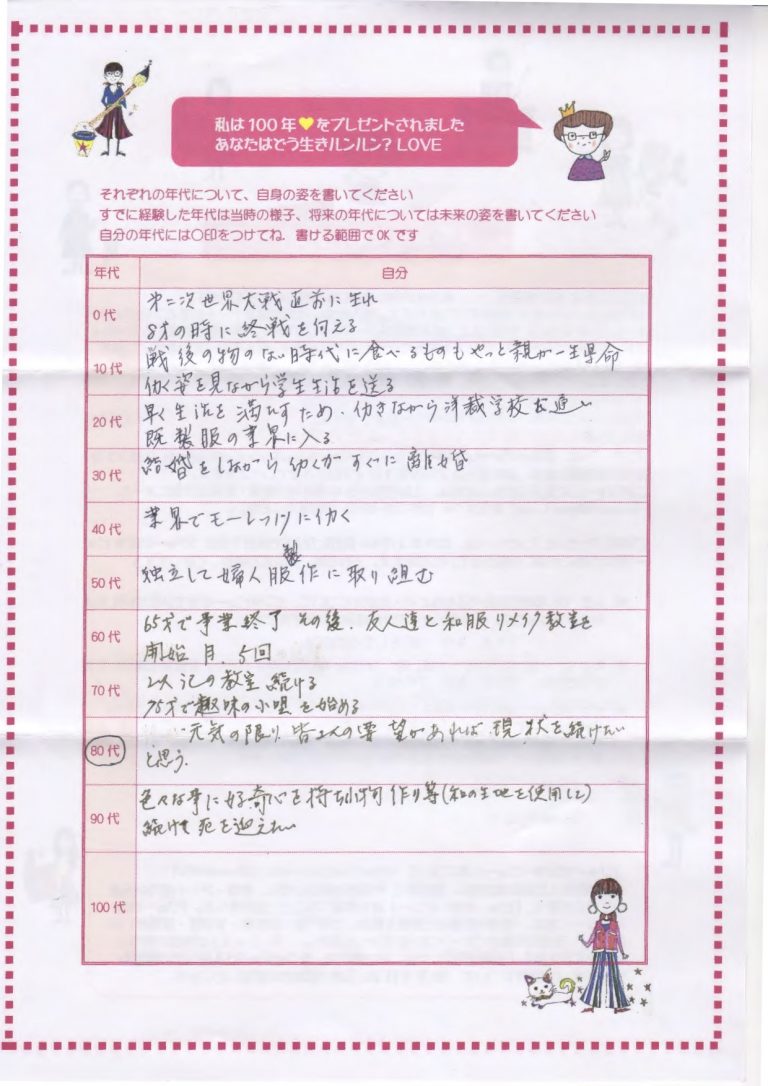 私は100年♥をプレゼントされました
あなたはどう生きルンルン? LOVE
それぞれの年代について、自身の姿を書いてください
すでに経験した年代は当時の様子、将来の年代については未来の姿を書いてください
自分の年代には〇印をつけてね 書ける範囲でOKです
年代 自分
0代
第二次世界大戦直前に生れ
8才の時に終戦を向える
10代
戦後の物のない時代に食べるものもやっと親が一生県命
働く姿を見ながら学生生活を送る
20代
早く生活を満たすため、働きながら洋裁学校を通い
既製服の業界に入る
30代
結婚をしながら働くがすぐに離婚
40代
業界でモーレツに働く
50代
独立して婦人服製作に取り組む
60代
65才で事業終了 その後、友人達と和服リメイク教室を
開始 月、5回
70代
上記の教室続ける
75才で趣味の小唄を始める
80代
元気の限り 皆さんの要望があれば 現状を続けたい
と思う。
90代
色々な事に好奇心を持ち小物作り等(和の生地を使用して)
続け 死を迎えたい
100代